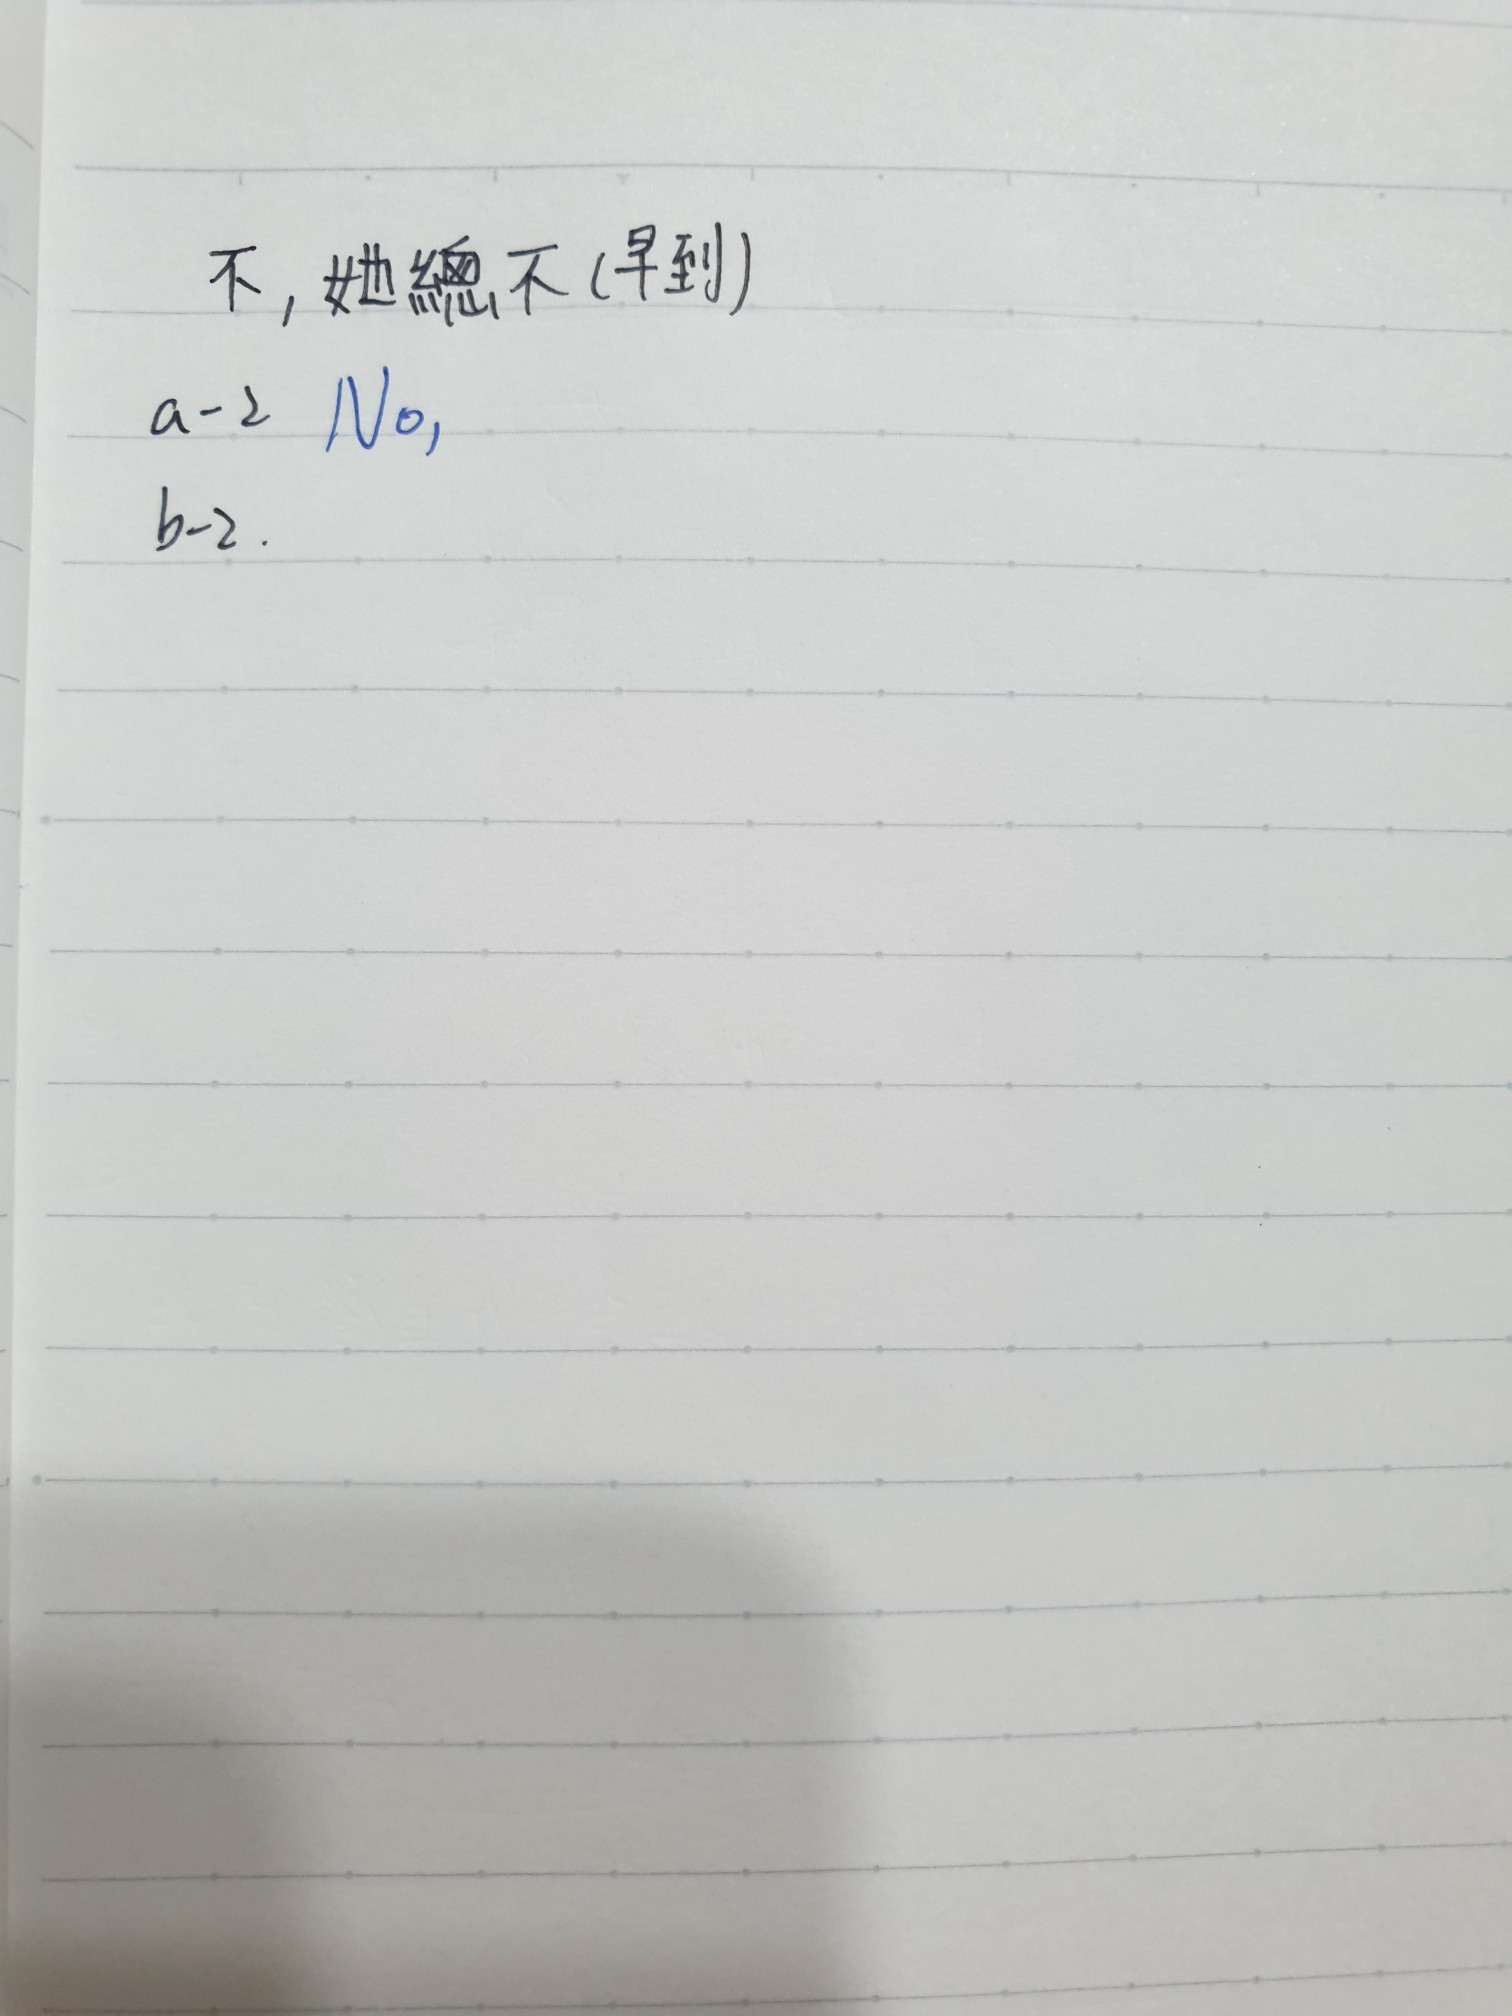 不,她總不(早到)
a-2 No,
b-2.